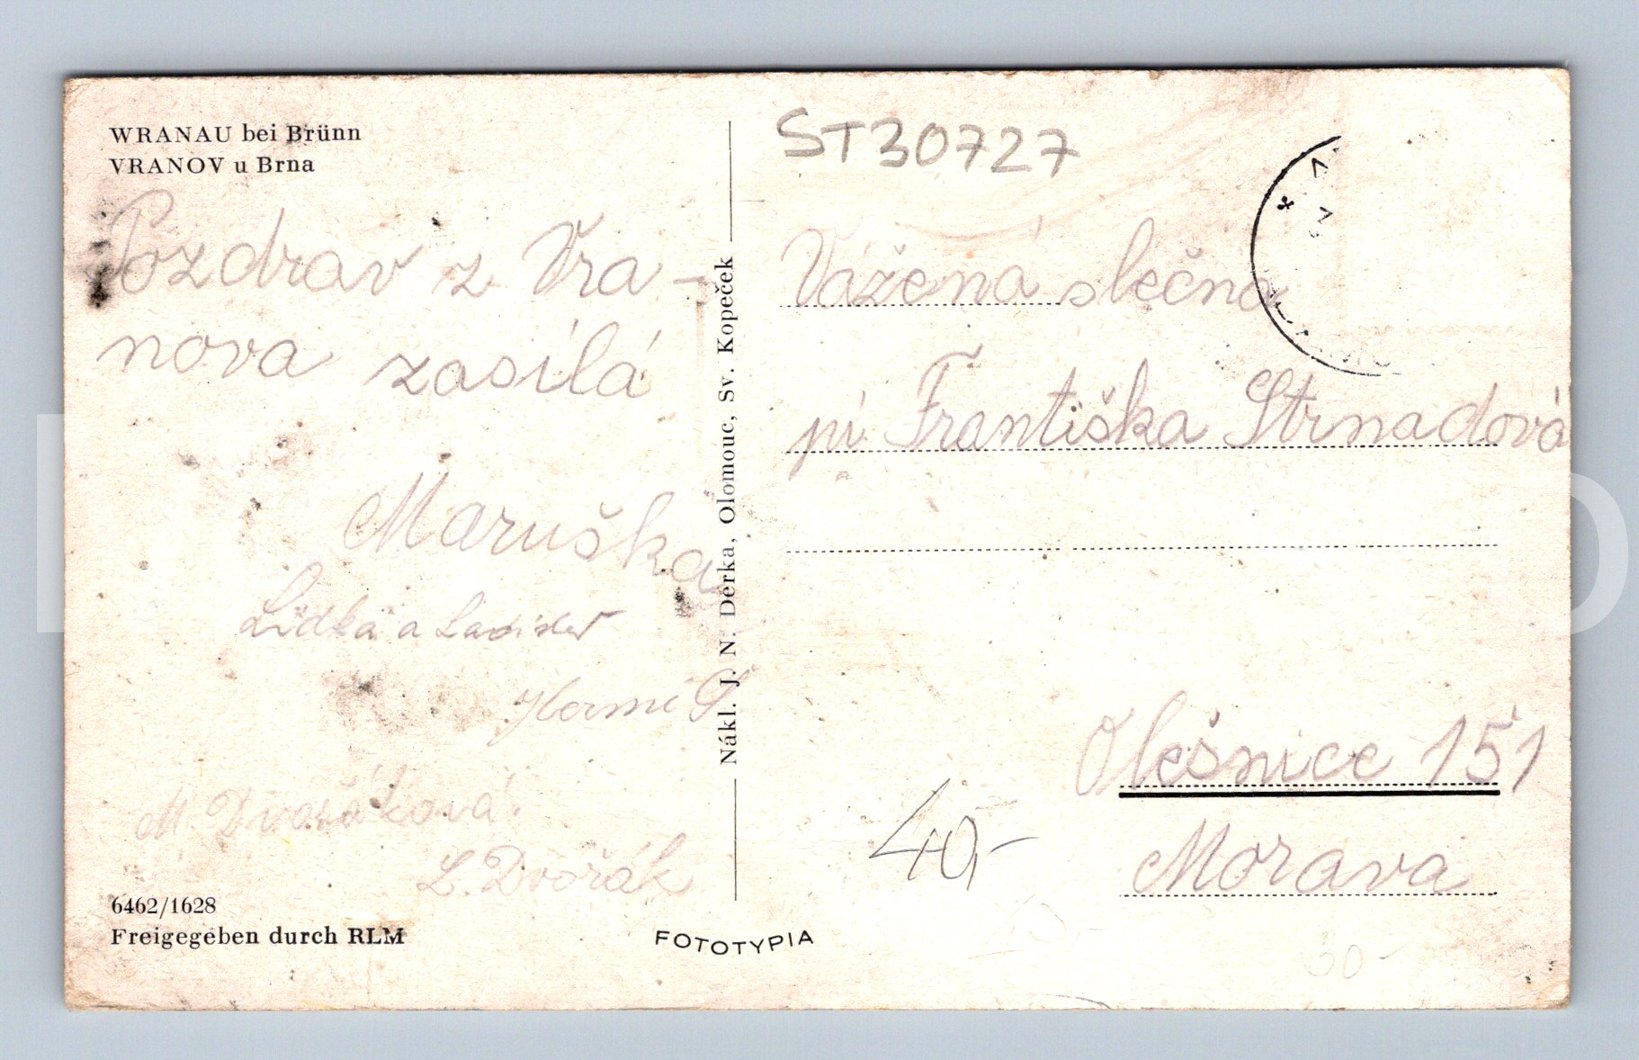 WRANAU bei Brünn
VRANOV u Brna
Pozdrav z Vra-
nova zasílá
Maruška
Lidka a Ladislav
M Dvořáková.
L. Dvořák
6462/1628
Freigegeben durch RLM
FOTOTYPIA
Nákl. J. N. Derka, Olomouc, Sv. Kopeček
ST30727
Vážená slečna
pí Františka Strnadová
Olešnice 151
Morava
40,-
30-